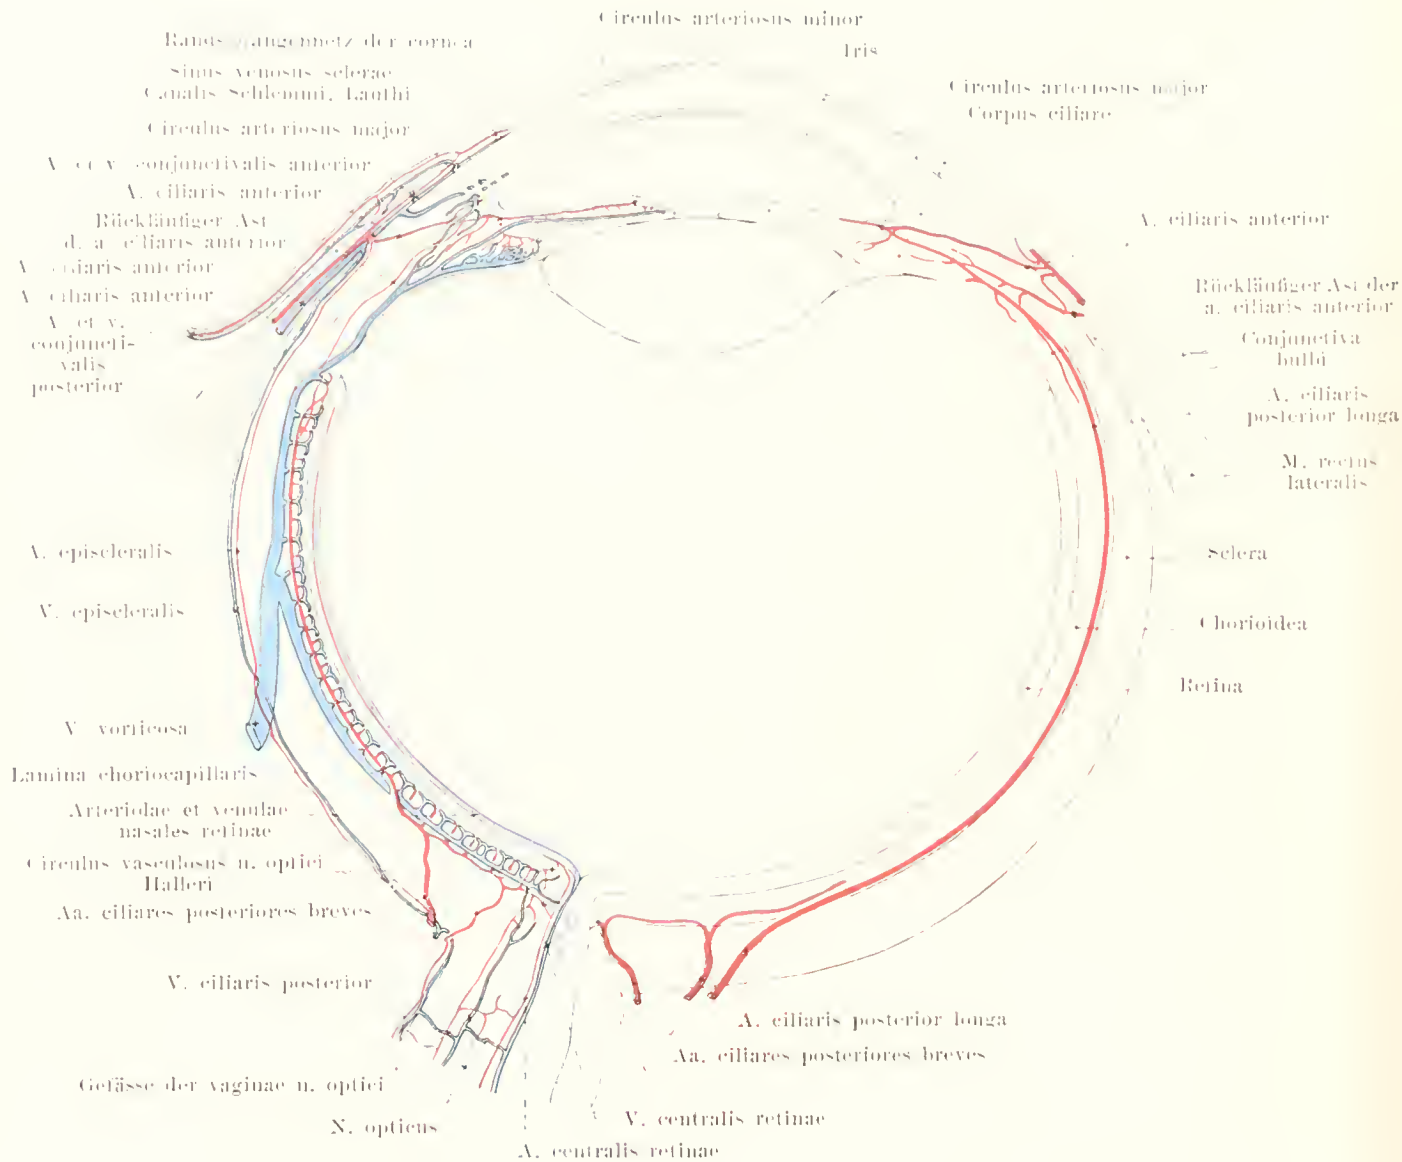 Circulus arteriosus minor
der cornea
Iris
Sinus venosus sclerae
Canalis Schlemmi, Lauthi
Circulus arteriosus major
Corpus ciliare
Circulus arteriosus major
A. et v. conjunctivalis anterior
A. ciliaris anterior
Rückläufiger Ast
d. a. ciliaris anterior
A. ciliaris anterior
A. ciliaris anterior
A. et v.
conjuncti-
valis
posterior
A. episcleralis
V. episcleralis
V. vorticosa
Lamina choriocapillaris
Arteriolae et venulae
nasales retinae
Circulus vasculosus n. optici
Halleri
Aa. ciliares posteriores breves
V. ciliaris posterior
Gefässe der vaginae n. optici
N. opticus
A. centralis retinae
V. centralis retinae
Aa. ciliares posteriores breves
A. ciliaris posterior longa
A. ciliaris anterior
Rückläufiger Ast der
a. ciliaris anterior
Conjunctiva
bulbi
A. ciliaris
posterior longa
M. rectus
lateralis
Sclera
Chorioidea
Retina